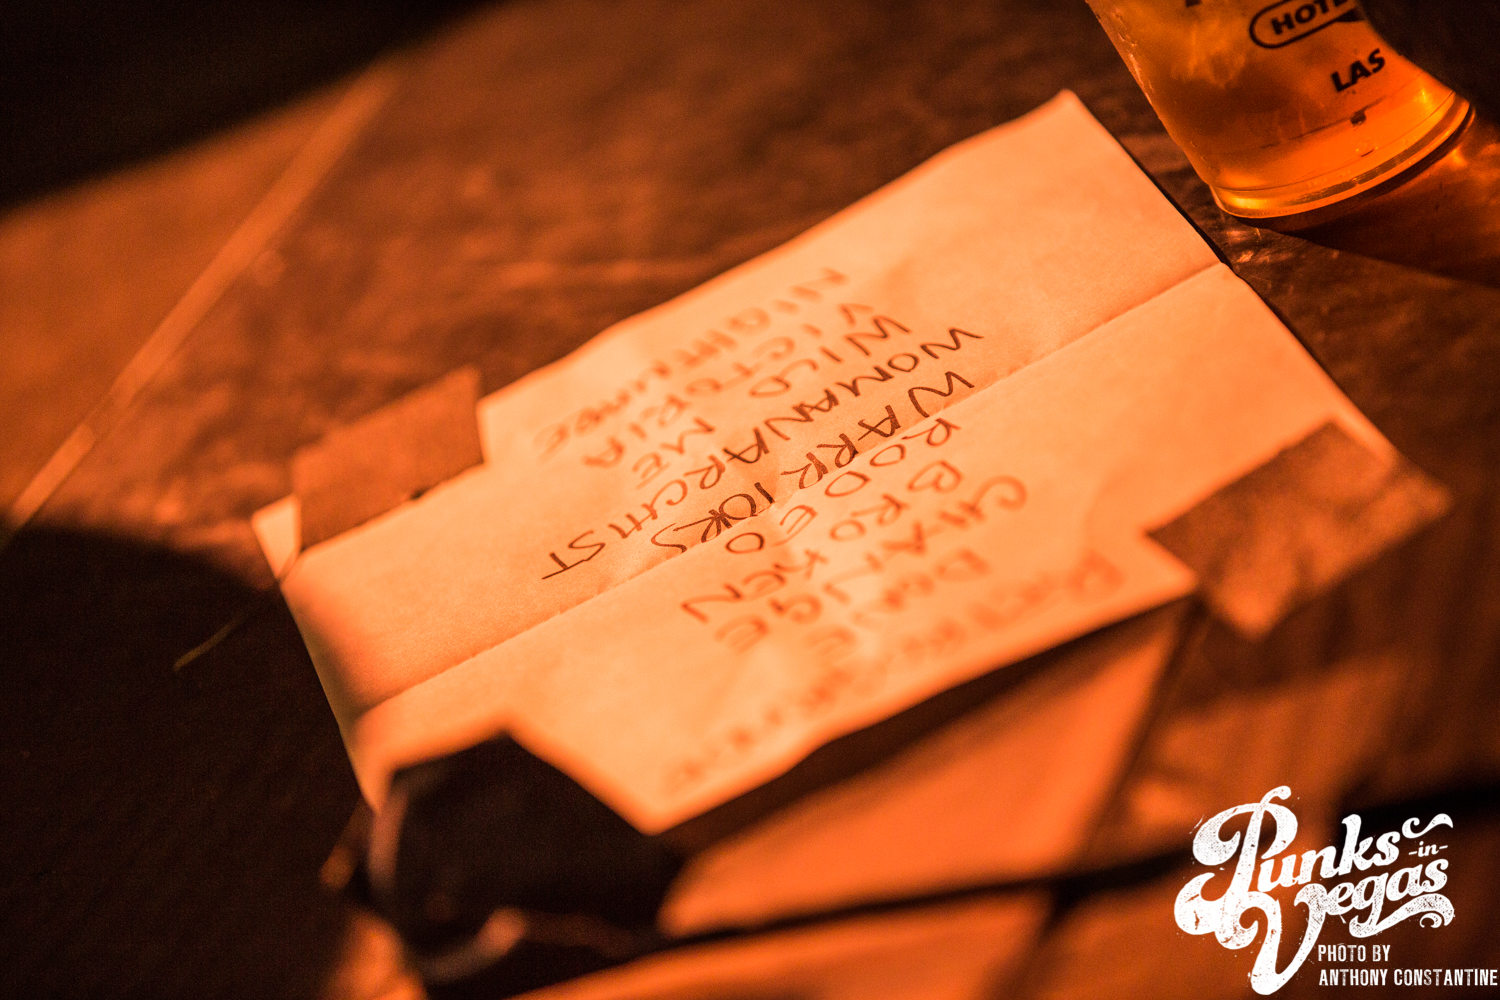 NIGHTTIME
VICTORIA
WILD ME
WOMANARCHIST
WARRIORS
RODEO
BROKEN
CHANGE
DONE
HOTEL
LAS
Punks
-in-
Vegas
PHOTO BY
ANTHONY CONSTANTINE